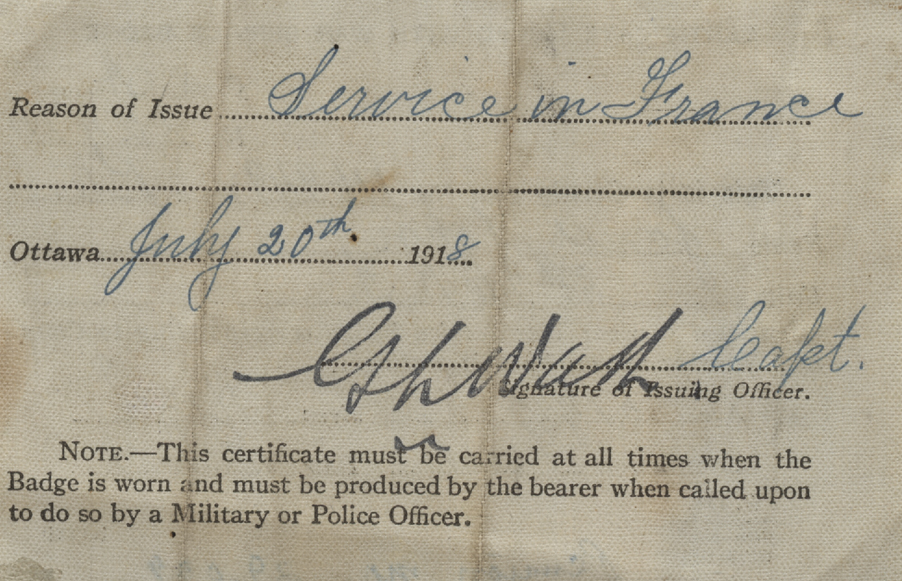 Reason of Issue Service in France
Ottawa July 20th 1918
Capt.
Signature of Issuing Officer.
NOTE.—This certificate must be carried at all times when the
Badge is worn and must be produced by the bearer when called upon
to do so by a Military or Police Officer.